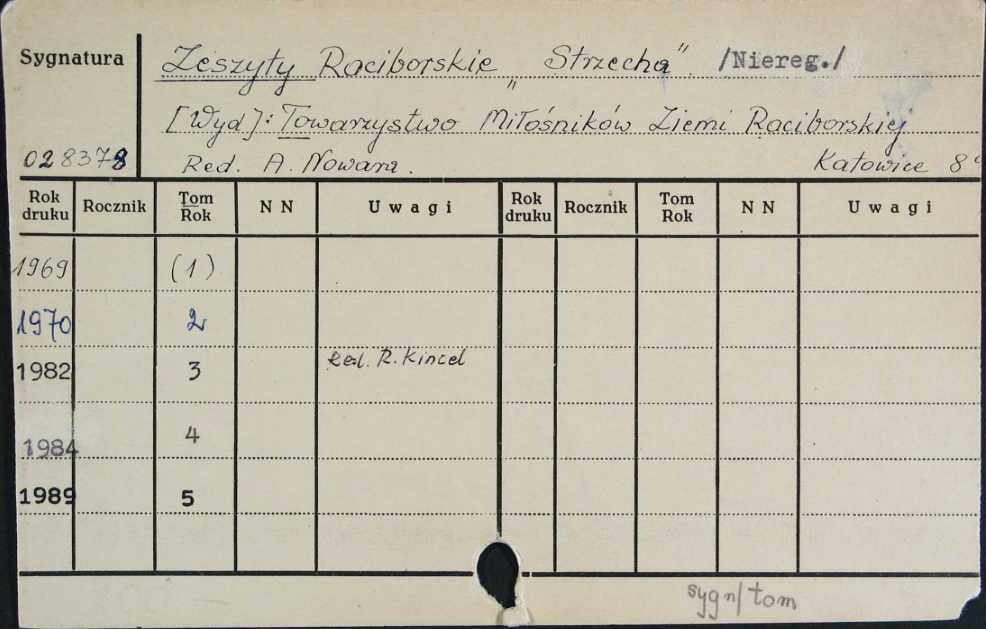 Sygnatura Zeszyty Raciborskie „Strzecha". /Niereg./
[Wyd]: Towarzystwo Miłośników Ziemi Raciborskiej
028378 Red. A. Nowara. Katowice 8°
Rok druku Rocznik Tom Rok N N Uwagi Rok druku Rocznik Tom Rok N N Uwagi
1969 (1)
1970 2
1982 3 Red. R. Kincel
1984 4
1989 5
sygn/tom